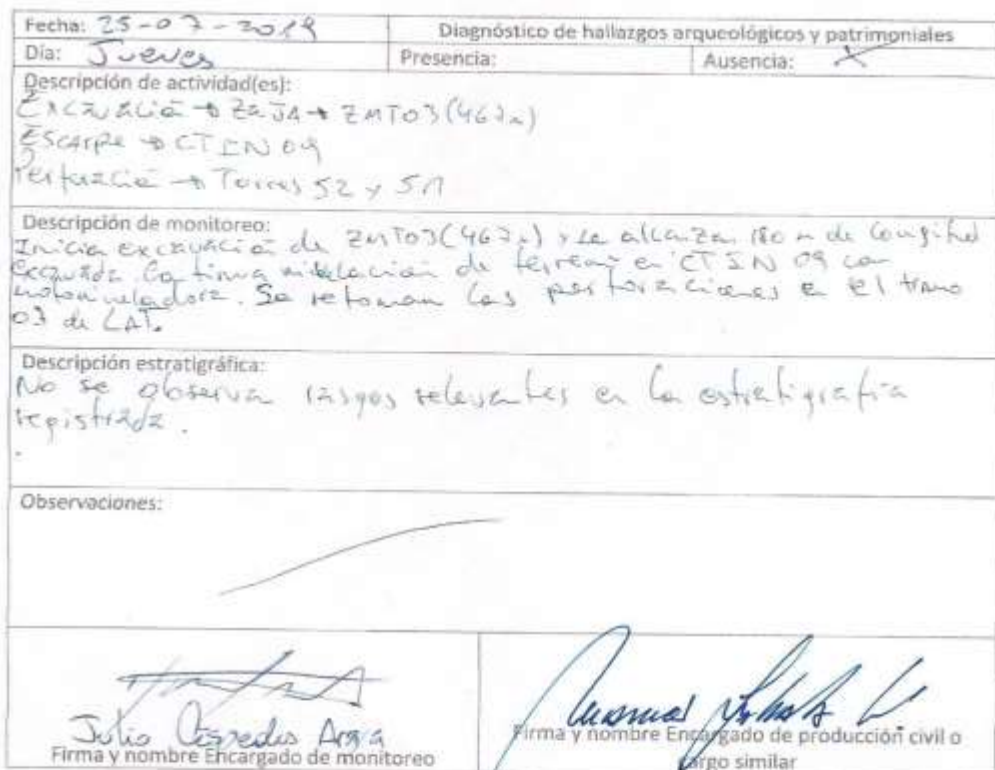 Fecha: 25-07-2019
Diagnóstico de hallazgos arqueológicos y patrimoniales
Día: Jueves
Presencia:
Ausencia: X
Descripción de actividad(es):
Excavación → Zanja → ZMT03 (467m)
Escarpe → CT IN 09
Perforación → Torres 52 y 51
Descripción de monitoreo:
Inicia excavación de ZMT03 (467m) y se alcanzan 180 m de longitud
excavada. Continua nivelación de terreno en CT IN 09 con
motoniveladora. Se retoman las perforaciones en el tramo
03 de LAT.
Descripción estratigráfica:
No se observan rasgos relevantes en la estratigrafía
registrada.
Observaciones:
Julio Céspedes Araya
Firma y nombre Encargado de monitoreo
Firma y nombre Encargado de producción civil o
cargo similar